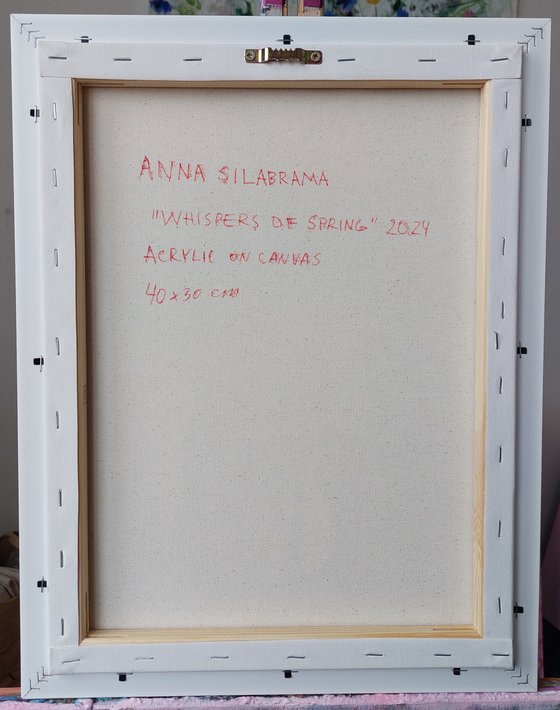 ANNA SILABRAMA
"WHISPERS OF SPRING" 2024
ACRYLIC ON CANVAS
40x30 cm